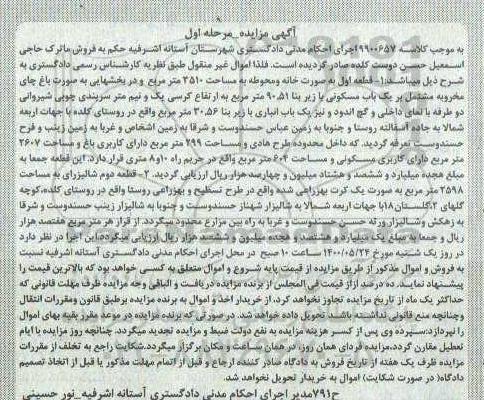 آگهی مزایده_مرحله اول
به موجب کلاسه 9900657 اجرای احکام مدنی دادگستری شهرستان آستانه اشرفیه حکم به فروش ماترک حاجی
اسمعیل حسن دوست کلده صادر گردیده است. فلذا اموال غیر منقول طبق نظریه کارشناس رسمی دادگستری به
شرح ذیل میباشد:1- قطعه اول به صورت خانه ومحوطه به مساحت 3510 متر مربع و در بخشهایی به صورت باغ چای
مخروبه مشتمل بر یک باب مسکونی با زیر بنا 90.51 متر مربع به ارتفاع کرسی یک و نیم متر سربندی چوبی شیروانی
دو طرفه با نمای داخلی و گچ اندود و نیز یک باب انباری با زیر بنا 30.56 متر مربع واقع در روستای کلده با جهات اربعه
شمالا به جاده آسفالته روستا و جنوبا به زمین عباس حسندوست و شرقا به زمین اشخاص و غربا به زمین زینب و فرح
حسندوست تعرفه گردید. که داخل محدوده طرح هادی و مساحت 299 متر مربع دارای کاربری باغ و مساحت 2607
متر مربع دارای کاربری مسکونی و مساحت 604 متر مربع واقع در حریم راه 10و8 متری قرار دارد. این قطعه جمعا به
مبلغ هجده میلیارد و ششصد و هشتاد میلیون و چهارصد هزار ریال ارزیابی گردید. 2- قطعه دوم شالیزرای به مساحت
2598 متر مربع به صورت یک کرت بهزراهی شده واقع در طرح تسطیح و بهزراعی روستا واقع در روستای کلده،کوچه
گلهای 2،گلستان18با جهات اربعه شمالا به شالیزار شهناز حسندوست و جنوبا به شالیزار زینب حسندوست و شرقا
به زهکش وشالیزار ورثه حسن حسندوست و غربا به راه بین مزارع محدود میگردد. از قرار هر متر مربع هفتصد هزار
ریال و جمعا به مبلغ یک میلیارد و هشتصد و هجده میلیون و ششصد هزار ریال ارزیابی میگردد.این اجرا در نظر دارد
در روز یک شنبه مورخ 1400/05/24 ساعت 10 صبح در محل اجرای احکام مدنی دادگستری آستانه اشرفیه نسبت
به فروش و اموال مذکور از طریق مزایده از قیمت پایه شروع و اموال متعلق به کسی خواهد بود که بالاترین قیمت را
پیشنهاد نماید. ده درصد ازاز قیمت فی المجلس از برنده مزایده دریافت و الباقی وجه مزایده ظرف مهلت قانونی که
حداکثر یک ماه از تاریخ مزایده تجاوز نخواهد کرد، از خریدار اخذ و اموال به برنده مزایده برطبق قانون ومقررات انتقال
وچنانچه منع قانونی نداشته باشد تحویل داده خواهد شد. در صورتی که برنده مزایده در موعد مقرر بقیه بهای اموال
را نپردازد:سپرده وی پس از کسر هزینه مزایده به نفع دولت ضبط و مزایده تجدید میگردد. چنانچه روز مزایده با ایام
تعطیل مقارن گردد،مزایده فردای همان روز، در همان ساعت و مکان برگزار میگردد.شکایت راجع به تخلف از مقررات
مزایده ظرف یک هفته از تاریخ فروش به دادگاه صادر کننده ارجاع و قبل از اتمام مهلت مذکور یا قبل از اتخاذ تصمیم
دادگاه( در صورت شکایت) اموال به خریدار تحویل نخواهد شد.
ح791مدیر اجرای احکام مدنی دادگستری آستانه اشرفیه_نور حسینی